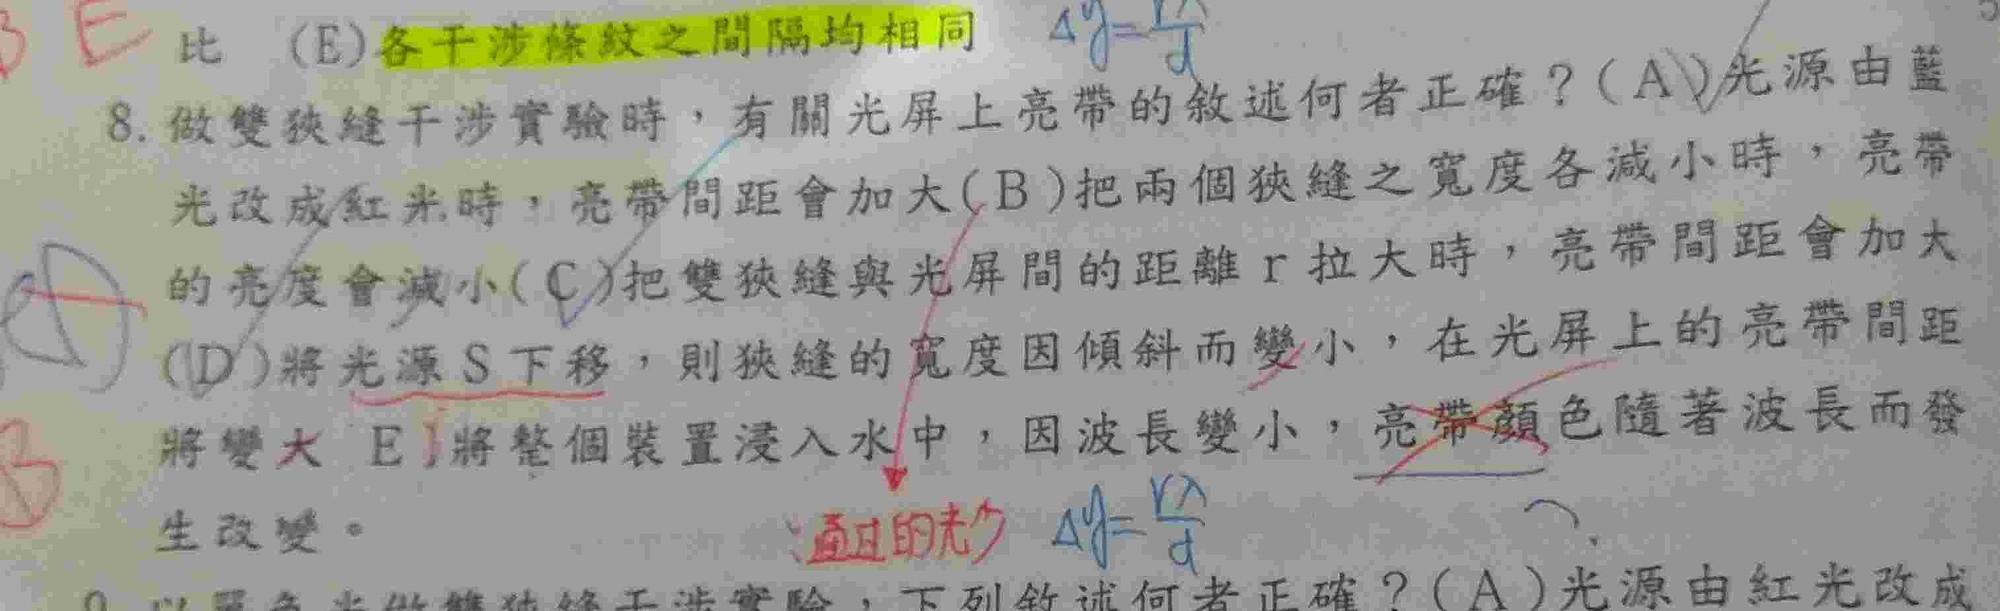 比 (E)各干涉條紋之間隔均相同 Δy=rλ/d
B E
8. 做雙狹縫干涉實驗時，有關光屏上亮帶的敘述何者正確？(A)光源由藍
光改成紅米時，亮帶間距會加大(B)把兩個狹縫之寬度各減小時，亮帶
的亮度會減小(C)把雙狹縫與光屏間的距離r拉大時，亮帶間距會加大
(D)將光源S下移，則狹縫的寬度因傾斜而變小，在光屏上的亮帶間距
將變大 E)將整個裝置浸入水中，因波長變小，亮帶顏色隨著波長而發
B
生改變。
∵通过的光少 Δy=rλ/d
9. 以單色光做雙狹縫干涉實驗，下列敘述何者正確？(A)光源由紅光改成